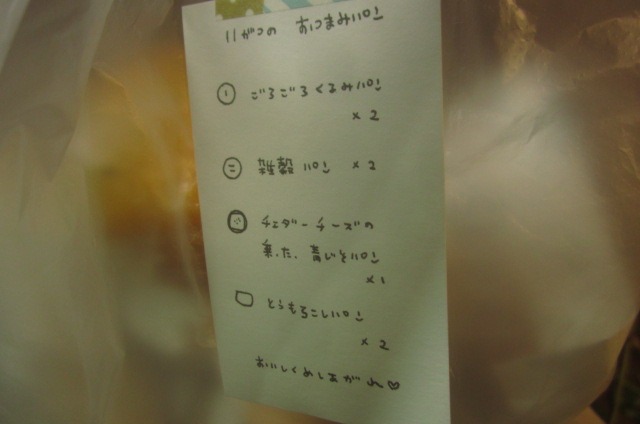 11がつの おつまみパン
ごろごろくるみパン
×2
雑穀パン ×2
チェダーチーズの
乗った、青じそパン
×1
とうもろこしパン
×2
おいしくめしあがれ♡